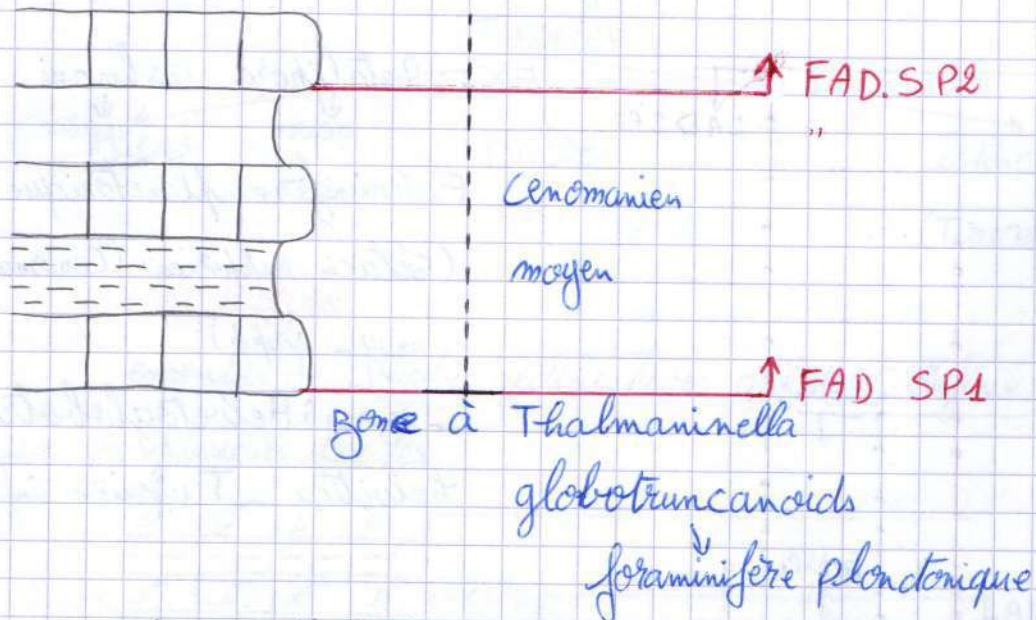 FAD. SP2
"
Cenomanien
moyen
FAD SP1
zone à Thalmaninella
globotruncanoids
foraminifère planctonique